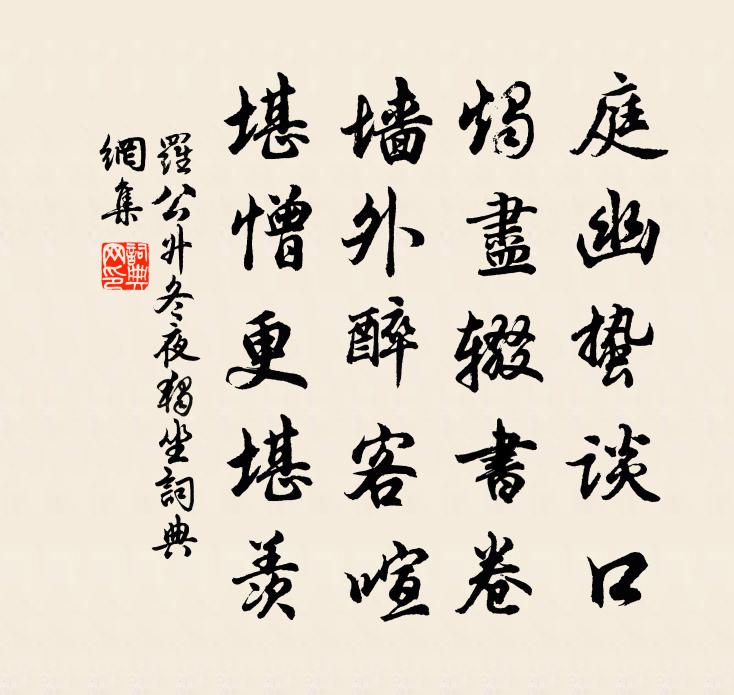 庭幽蛰谈口
烛盡辍書卷
墙外醉客喧
堪憎更堪羨
羅公升冬夜獨坐詞典
網集
詞典網印